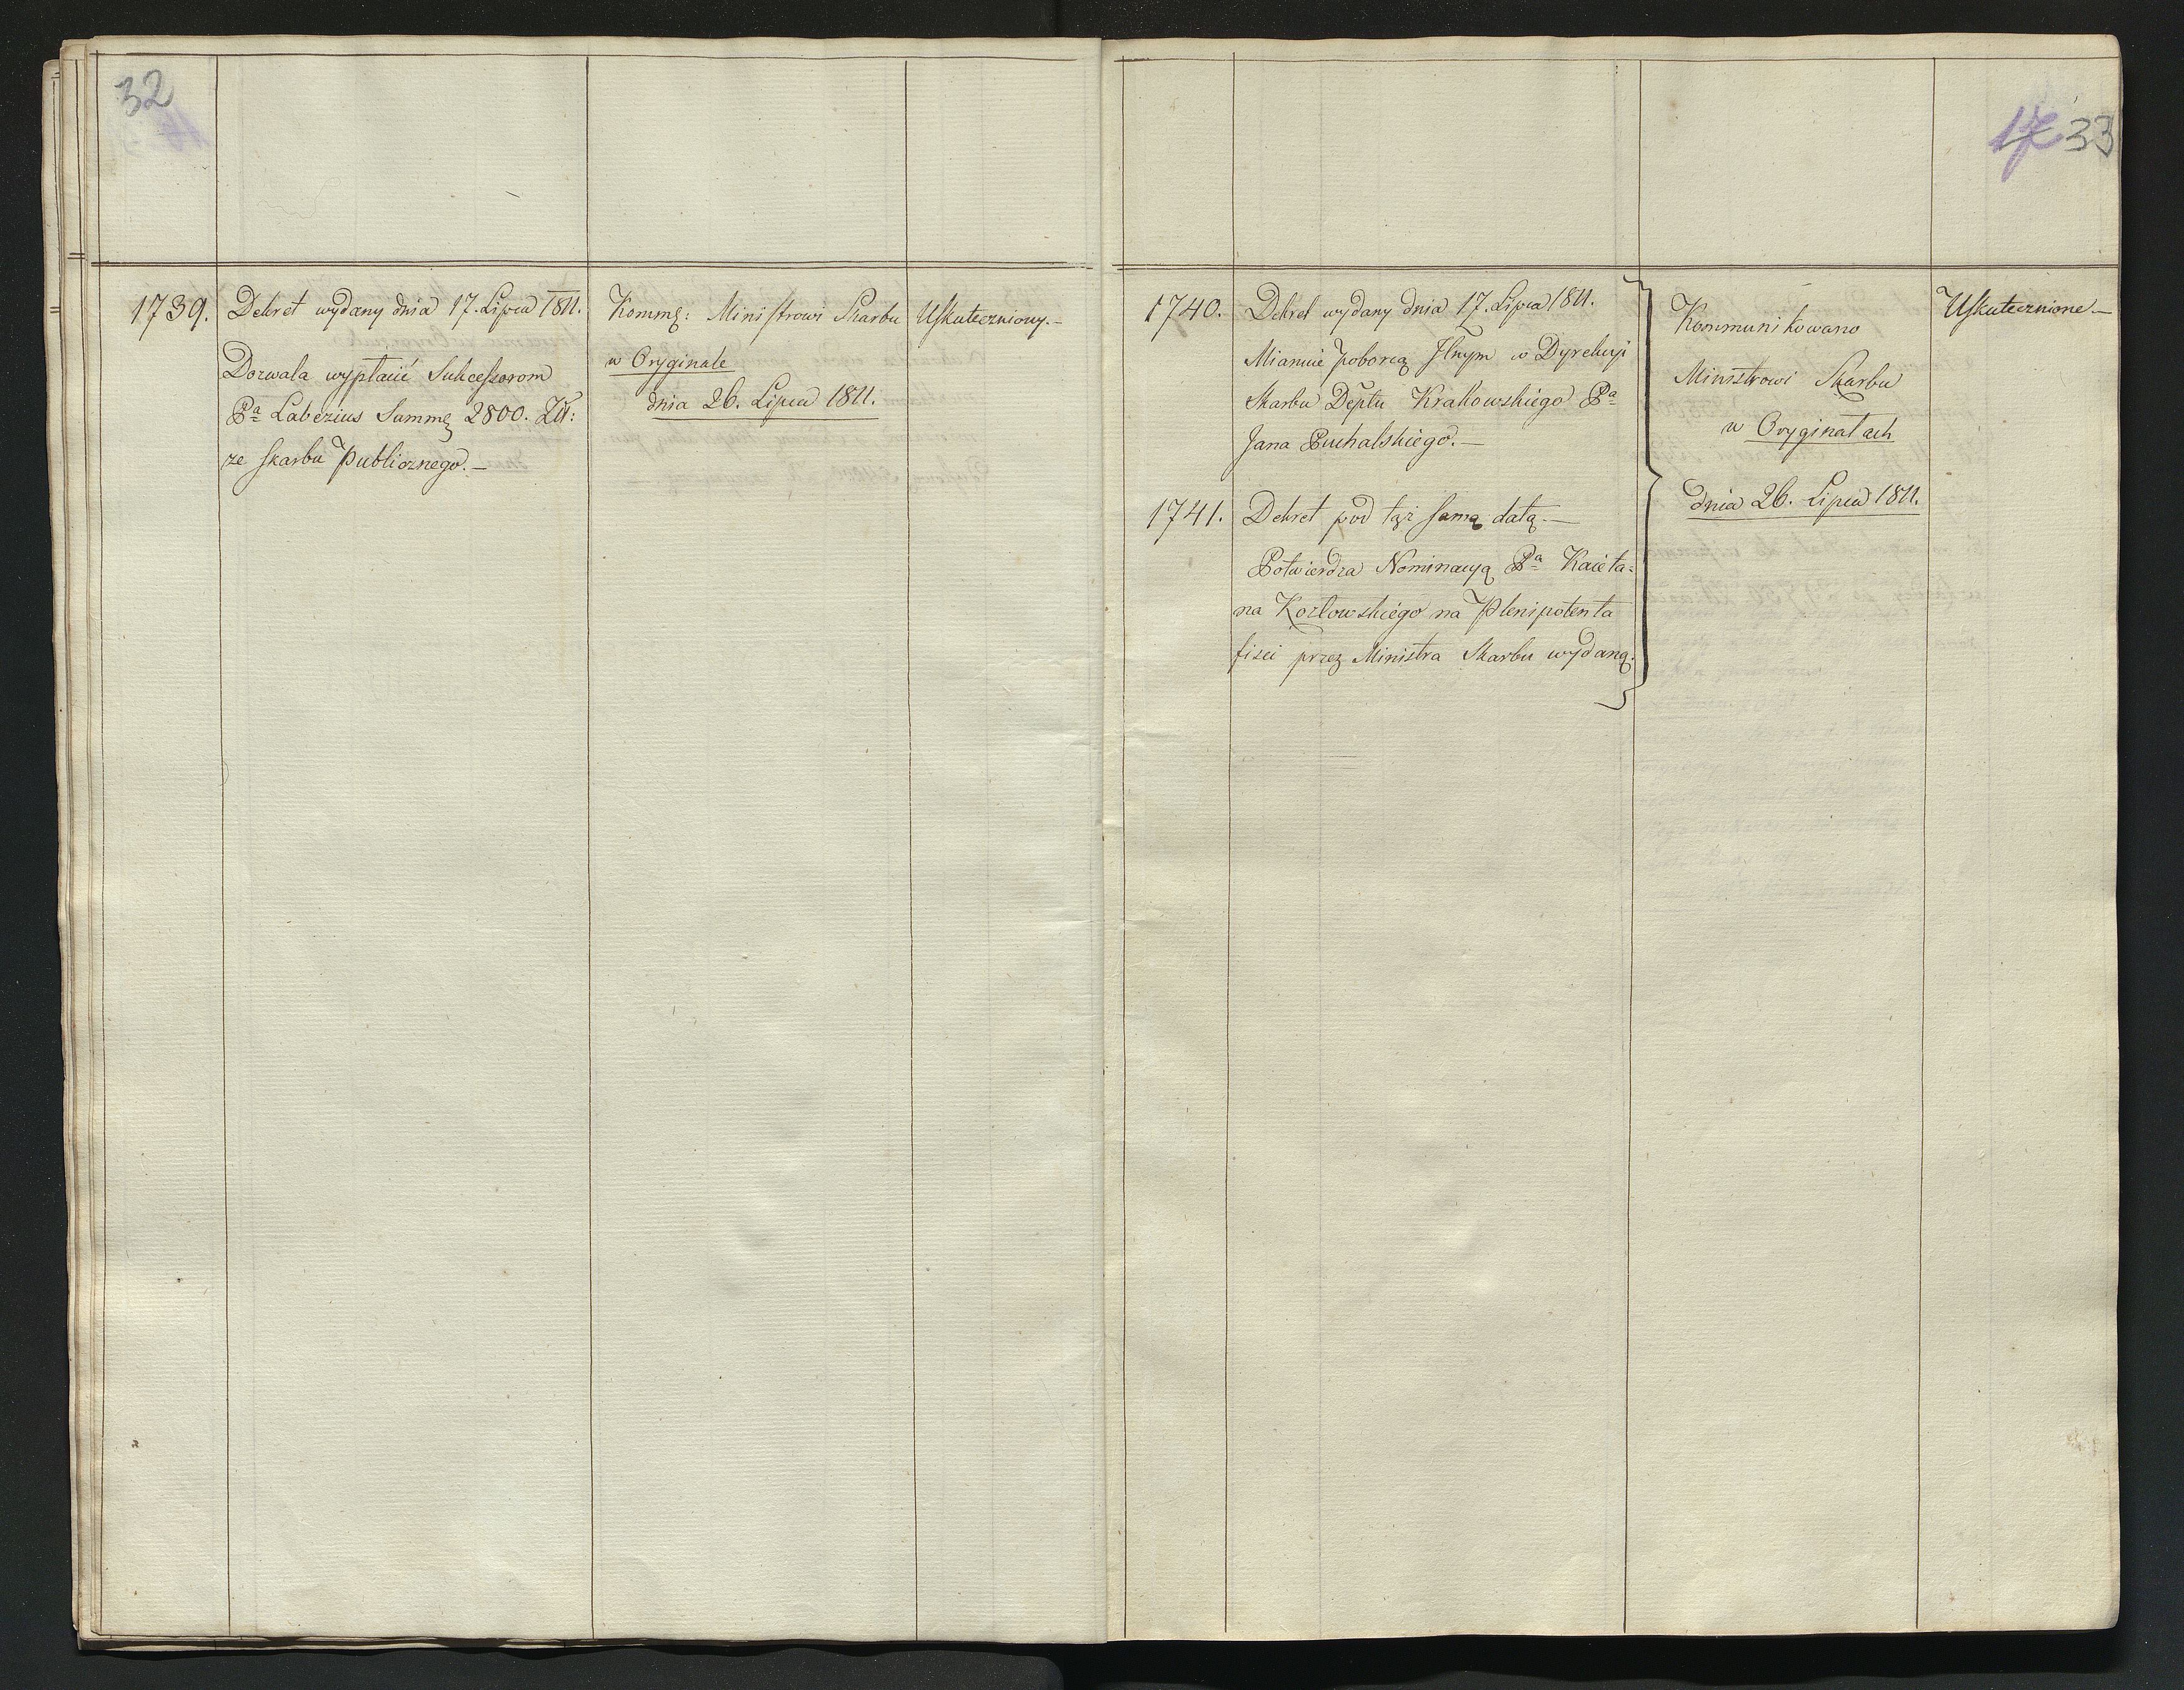 32
1739. Dekret wydany dnia 17. Lipca 1811.
Dozwala wypłacić Sukcessorom
Pa Labezius Summę 2800. Zł:
ze skarbu Publicznego.—
Kommę: Ministrowi Skarbu
w Oryginale
dnia 26. Lipca 1811.
Uskuteczniony.—
17 33
1740. Dekret wydany dnia 17. Lipca 1811.
Mianuie Poborcą Jlnym w Dyrekcyi
Skarbu Deptu Krakowskiego Pa
Jana Puchalskiego.—
1741. Dekret pod tąż samą datą.—
Potwierdza Nominacyą Pa Kaieta=
na Kozłowskiego na Plenipotenta
fisci przez Ministra Skarbu wydaną.
Kommunikowano
Ministrowi Skarbu
w Oryginałach
dnia 26. Lipca 1811.
Uskutecznione—